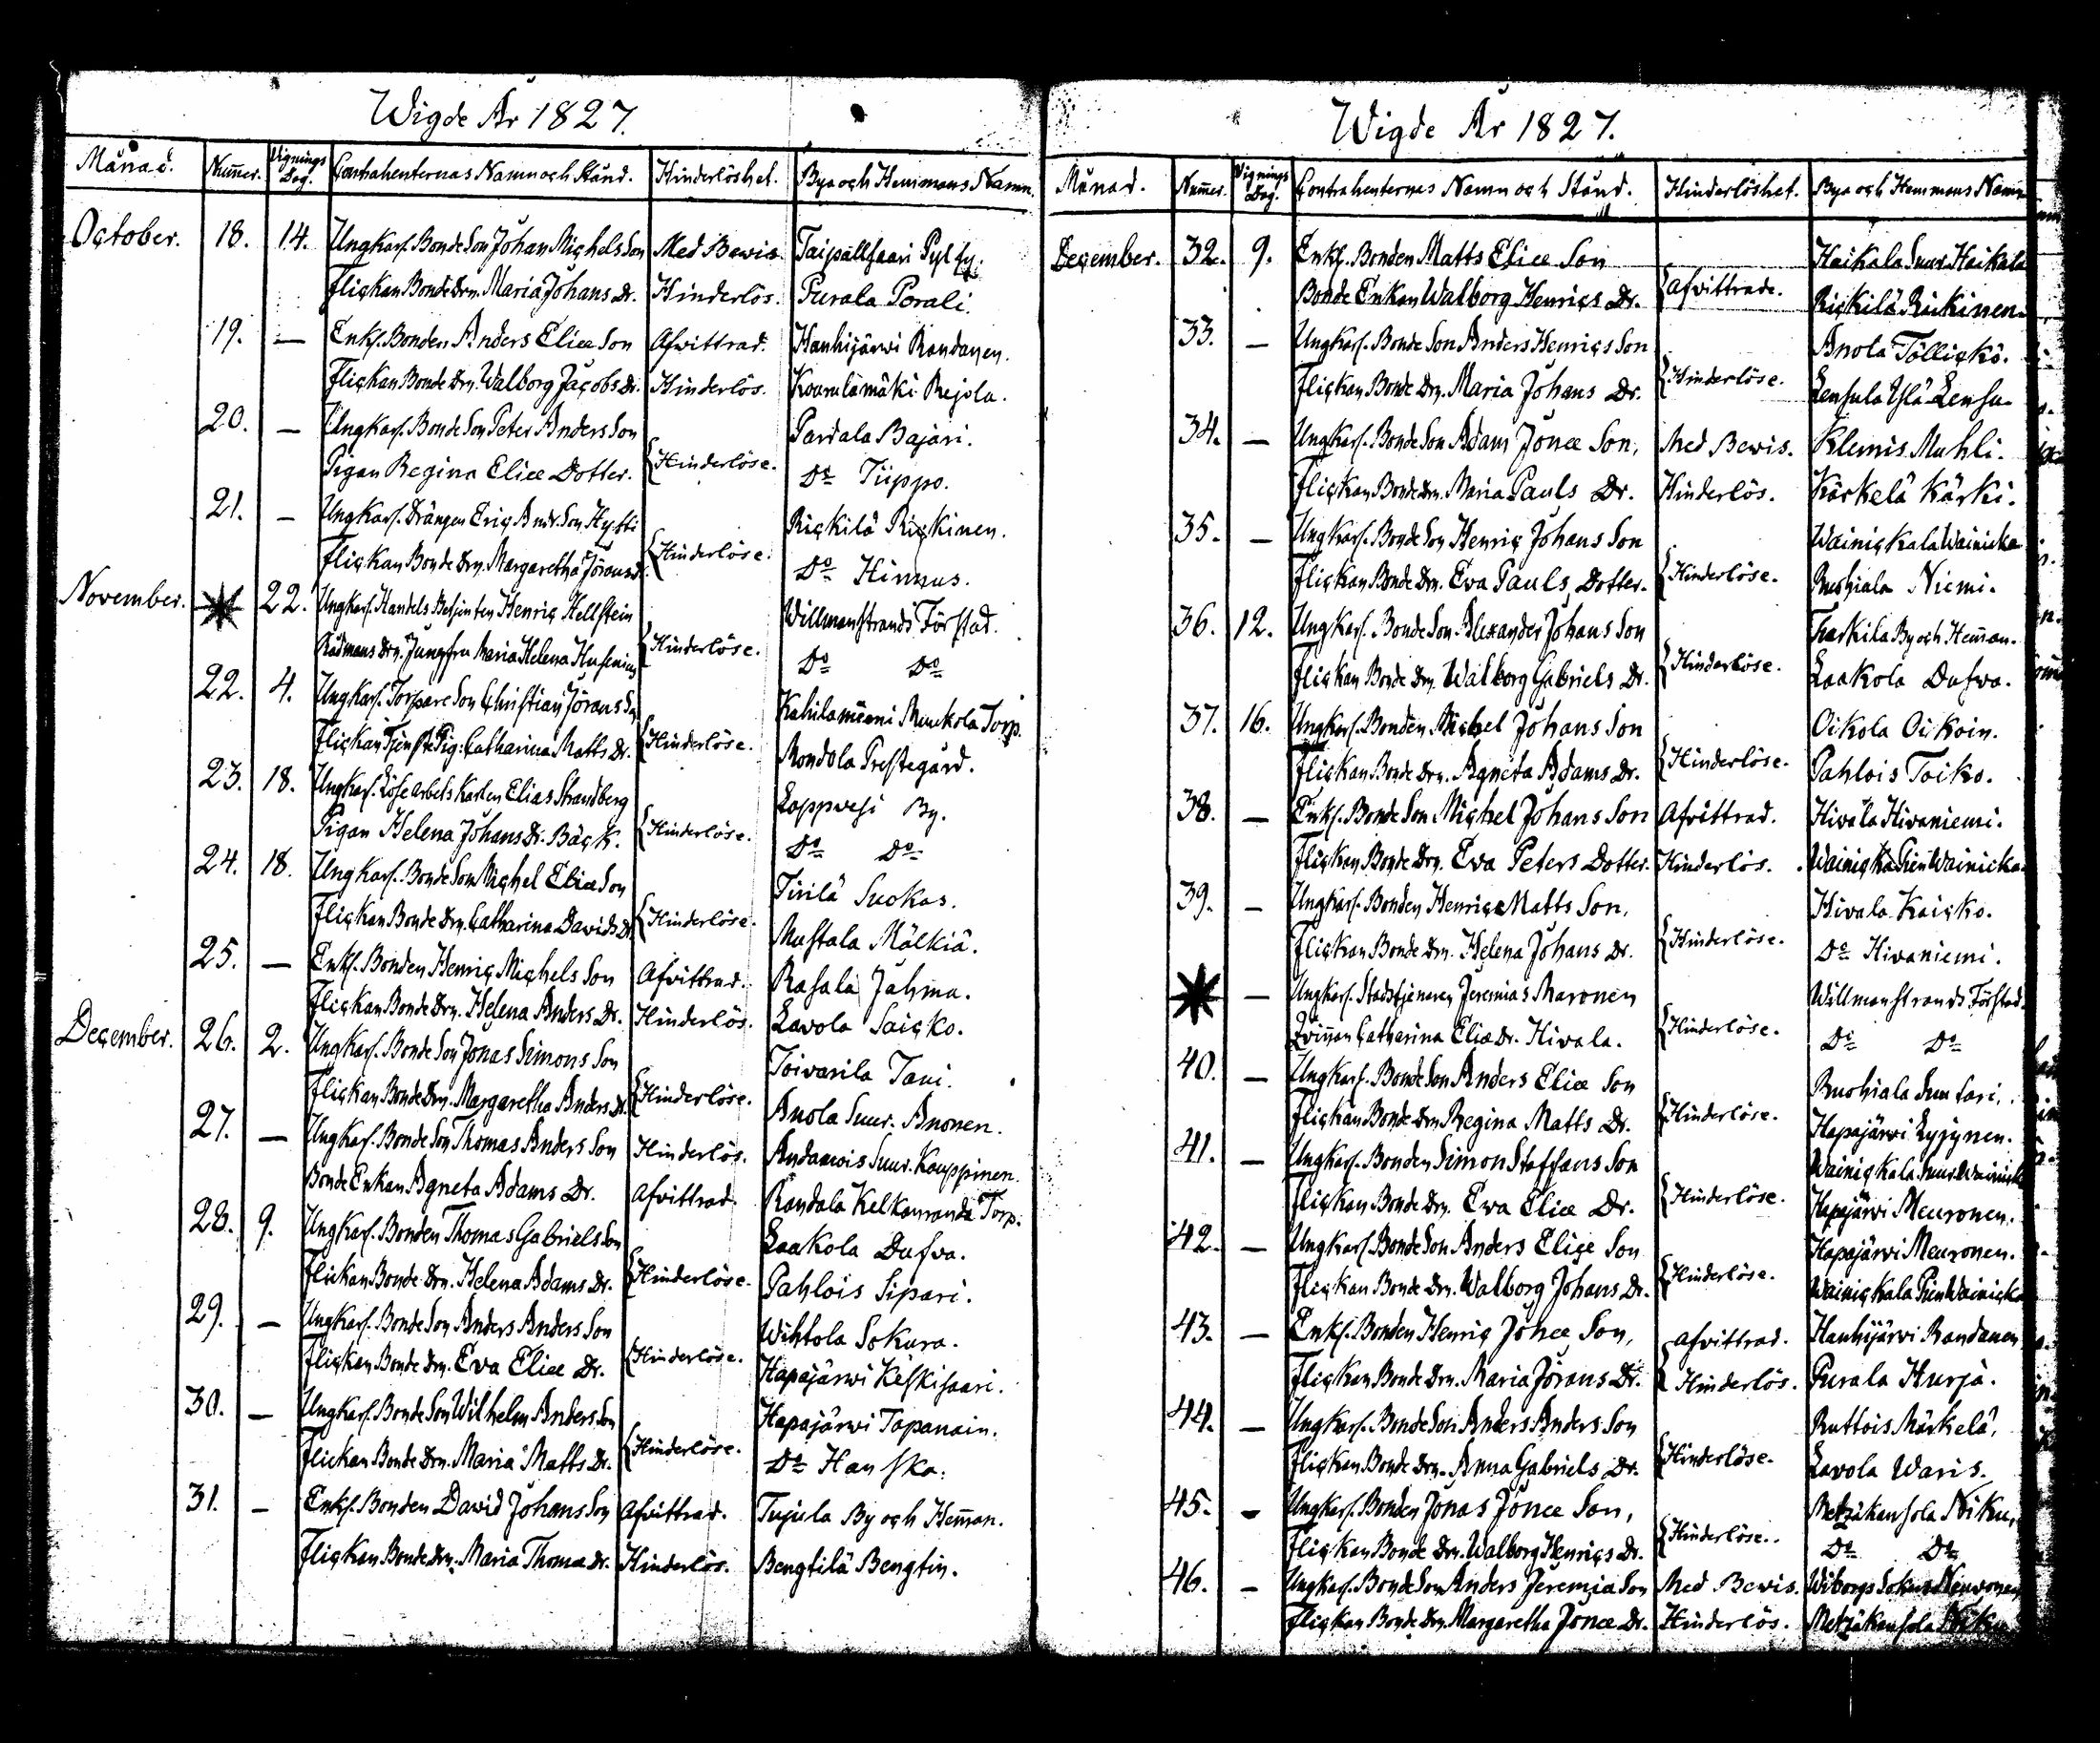 Wigde År 1827.
Månad. Num̅er. Vignings Dag. Contrahenternas Namn och Stånd. Hinderlöshet. Bya och Hemmans Namn.
October. 18. 14. Ungkarl. Bonde Son Johan Michels Son Med Bewis. Taipallsaari Pylsy.
Flickan Bonde Drn. Maria Johans Dr. Hinderlös. Purala Porali.
19. — Enkl. Bonden Anders Eliæ Son Afvittrad. Hanhijärwi Randanen.
Flickan Bonde Drn. Walborg Jacobs Dr. Hinderlös. Kourulamäki Rejola.
20. — Ungkarl. Bonde Son Peter Anders Son Pardala Bajäri.
Pigan Regina Eliæ Dotter. Hinderlöse. Do Tiippo.
21. — Ungkarl. Drängen Eric And. Son Hytti Rickilä Rickinen.
Flickan Bonde Drn. Margaretha Jörans Dr. Hinderlöse. Do Himmus.
November. 22. Ungkarl. Handels Betjenten Henric Hellstein Willmanstrands Förstad.
Rådmans Drn. Jungfru Maria Helena Husenius Hinderlöse. Do Do
22. 4. Ungkarl. Torpare Son Christian Jörans Son Kahilaniemi Muukola Torp.
Flickan Tjenste Pig. Catharina Matts Dr. Hinderlöse. Mondola Prestegård.
23. 18. Ungkarl. Löse arbets Karlen Elias Strandberg Lappvesi By.
Pigan Helena Johans Dr. Bäck. Hinderlöse. Do Do
24. 18. Ungkarl. Bonde Son Michel Eliæ Son Tirilä Suokas.
Flickan Bonde Drn. Catharina Davids Dr. Hinderlöse. Mustala Mälkiä.
25. — Enkl. Bonden Henric Michels Son Afvittrad. Rasala Jahma.
Flickan Bonde Drn. Helena Anders Dr. Hinderlös. Lavola Saicko.
December. 26. 2. Ungkarl. Bonde Son Jonas Simons Son Toivarila Tani.
Flickan Bonde Drn. Margaretha Anders Dr. Hinderlöse. Anola Suur. Anonen.
27. — Ungkarl. Bonde Son Thomas Anders Son Hinderlös. Andarvois Suur. Kauppinen.
Bonde Enkan Agneta Adams Dr. Afvittrad. Randala Kelkanranda Torp.
28. 9. Ungkarl. Bonden Thomas Gabriels Son Laakola Dufva.
Flickan Bonde Drn. Helena Adams Dr. Hinderlöse. Pahlois Sipari.
29. — Ungkarl. Bonde Son Anders Anders Son Wihtola Sokura.
Flickan Bonde Drn. Eva Eliæ Dr. Hinderlöse. Hapajärwi Keskisaari.
30. — Ungkarl. Bonde Son Wilhelm Anders Son Hapajärwi Tapanain.
Flickan Bonde Drn. Maria Matts Dr. Hinderlöse. Do Hanska.
31. — Enkl. Bonden David Johans Son Afvittrad. Tujula By och Hem̅an.
Flickan Bonde Drn. Maria Thomæ Dr. Hinderlös. Bengtilä Bengtin.
Wigde År 1827.
Månad. Num̅er. Vignings Dag. Contrahenternas Namn och Stånd. Hinderlöshet. Bya och Hemmans Namn
December. 32. 9. Enkl. Bonden Matts Eliæ Son Haikala Suur Haikala
Bonde Enkan Walborg Henrics Dr. Afvittrade. Rickilä Rickinen.
33. — Ungkarl. Bonde Son Anders Henrics Son Anola Töllickö.
Flickan Bonde Drn. Maria Johans Dr. Hinderlöse. Lensula Ylä Lensu.
34. — Ungkarl. Bonde Son Adam Jonæ Son, Med Bewis. Klemis Muhli.
Flickan Bonde Drn. Maria Pauls Dr. Hinderlös. Kärkelä Kärki.
35. — Ungkarl. Bonde Son Henric Johans Son Wainickala Wainicka
Flickan Bonde Drn. Eva Pauls Dotter. Hinderlöse. Ruohiala Niemi.
36. 12. Ungkarl. Bonde Son Alexander Johans Son Tharkila By och Hem̅an.
Flickan Bonde Drn. Walborg Gabriels Dr. Hinderlöse. Laakola Dufva.
37. 16. Ungkarl. Bonden Michel Johans Son Oikola Oikoin.
Flickan Bonde Drn. Agneta Adams Dr. Hinderlöse. Pahlois Toiko.
38. — Enkl. Bonde Son Michel Johans Son Afvittrad. Hivala Hivaniemi.
Flickan Bonde Drn. Eva Peters Dotter. Hinderlös. Wainicka Pien Wainicka.
39. — Ungkarl. Bonden Henric Matts Son, Hivala Kaicko.
Flickan Bonde Drn. Helena Johans Dr. Hinderlöse. Do Hivaniemi.
— Ungkarl. Stadstjenaren Jeremias Maronen Willmanstrands Förstad
Qvin̅an Catharina Eliæ Dr. Hivala. Hinderlöse. Do Do
40. — Ungkarl. Bonde Son Anders Eliæ Son Ruohiala Suntari.
Flickan Bonde Drn Regina Matts Dr. Hinderlöse. Hapajärwi Lyijynen.
41. — Ungkarl. Bonden Simon Staffans Son Wainickala Suur Wainicka
Flickan Bonde Drn. Eva Eliæ Dr. Hinderlöse. Hapajärwi Meuronen.
42. — Ungkarl. Bonde Son Anders Eliæ Son Hapajärwi Meuronen.
Flickan Bonde Drn. Walborg Johans Dr. Hinderlöse. Wainickala Pien Wainicka
43. — Enkl. Bonden Henric Jönæ Son, Afvittrad. Hanhijärwi Randanen
Flickan Bonde Drn. Maria Jörans Dr. Hinderlös. Purala Hurja.
44. — Ungkarl. Bonde Son Anders Anders Son Ruttois Märkelä.
Flickan Bonde Drn. Anna Gabriels Dr. Hinderlöse. Lavola Waris.
45. — Ungkarl. Bonden Jonas Jonæ Son, Metzäkansola Niku.
Flickan Bonde Drn. Walborg Henrics Dr. Hinderlöse. Do Do
46. — Ungkarl. Bonde Son Anders Jeremiæ Son Med Bewis. Wiborgs Sokn Neuvonen
Flickan Bonde Drn. Margaretha Jonæ Dr. Hinderlös. Metzäkansola Niku